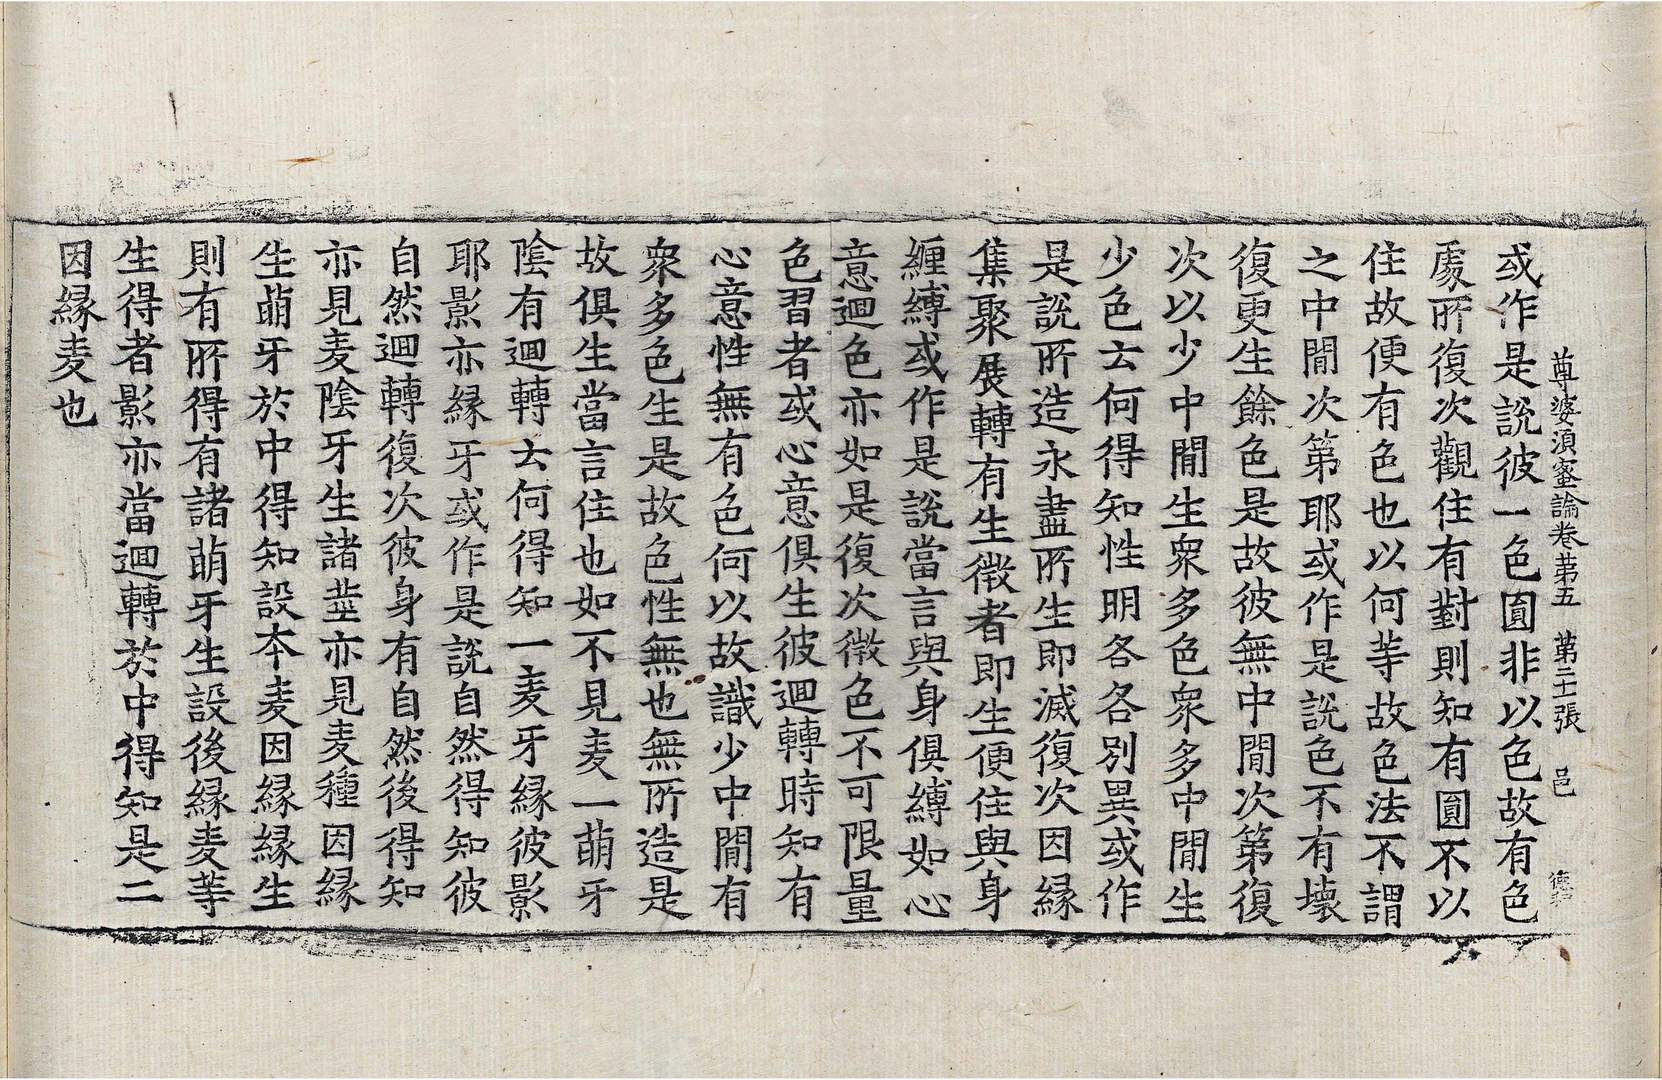 尊婆湏蜜論卷苐五 苐二十張 邑
或作是說彼一色圎非以色故有色
處所復次觀住有對則知有圎不以
住故便有色也以何等故色法不謂
之中間次第耶或作是說色不有壞
復更生餘色是故彼無中間次第復
次以少中間生衆多色衆多中間生
少色云何得知性明各各別異或作
是說所造永盡所生即滅復次因縁
集聚展轉有生徴者即生便住與身
纏縛或作是說當言與身俱縛如心
意迴色亦如是復次微色不可限量
色習者或心意俱生彼迴轉時知有
心意性無有色何以故識少中間有
衆多色生是故色性無也無所造是
故俱生當言住也如不見麦一萌牙
陰有迴轉云何得知一麦牙縁彼影
耶影亦縁牙或作是說自然得知彼
自然迴轉復次彼身有自然後得知
亦見麦陰牙生諸莖亦見麦種因縁
生萌牙於中得知設本麦因縁縁生
則有所得有諸萌牙生設後縁麦等
生得者影亦當迴轉於中得知是二
因縁麦也